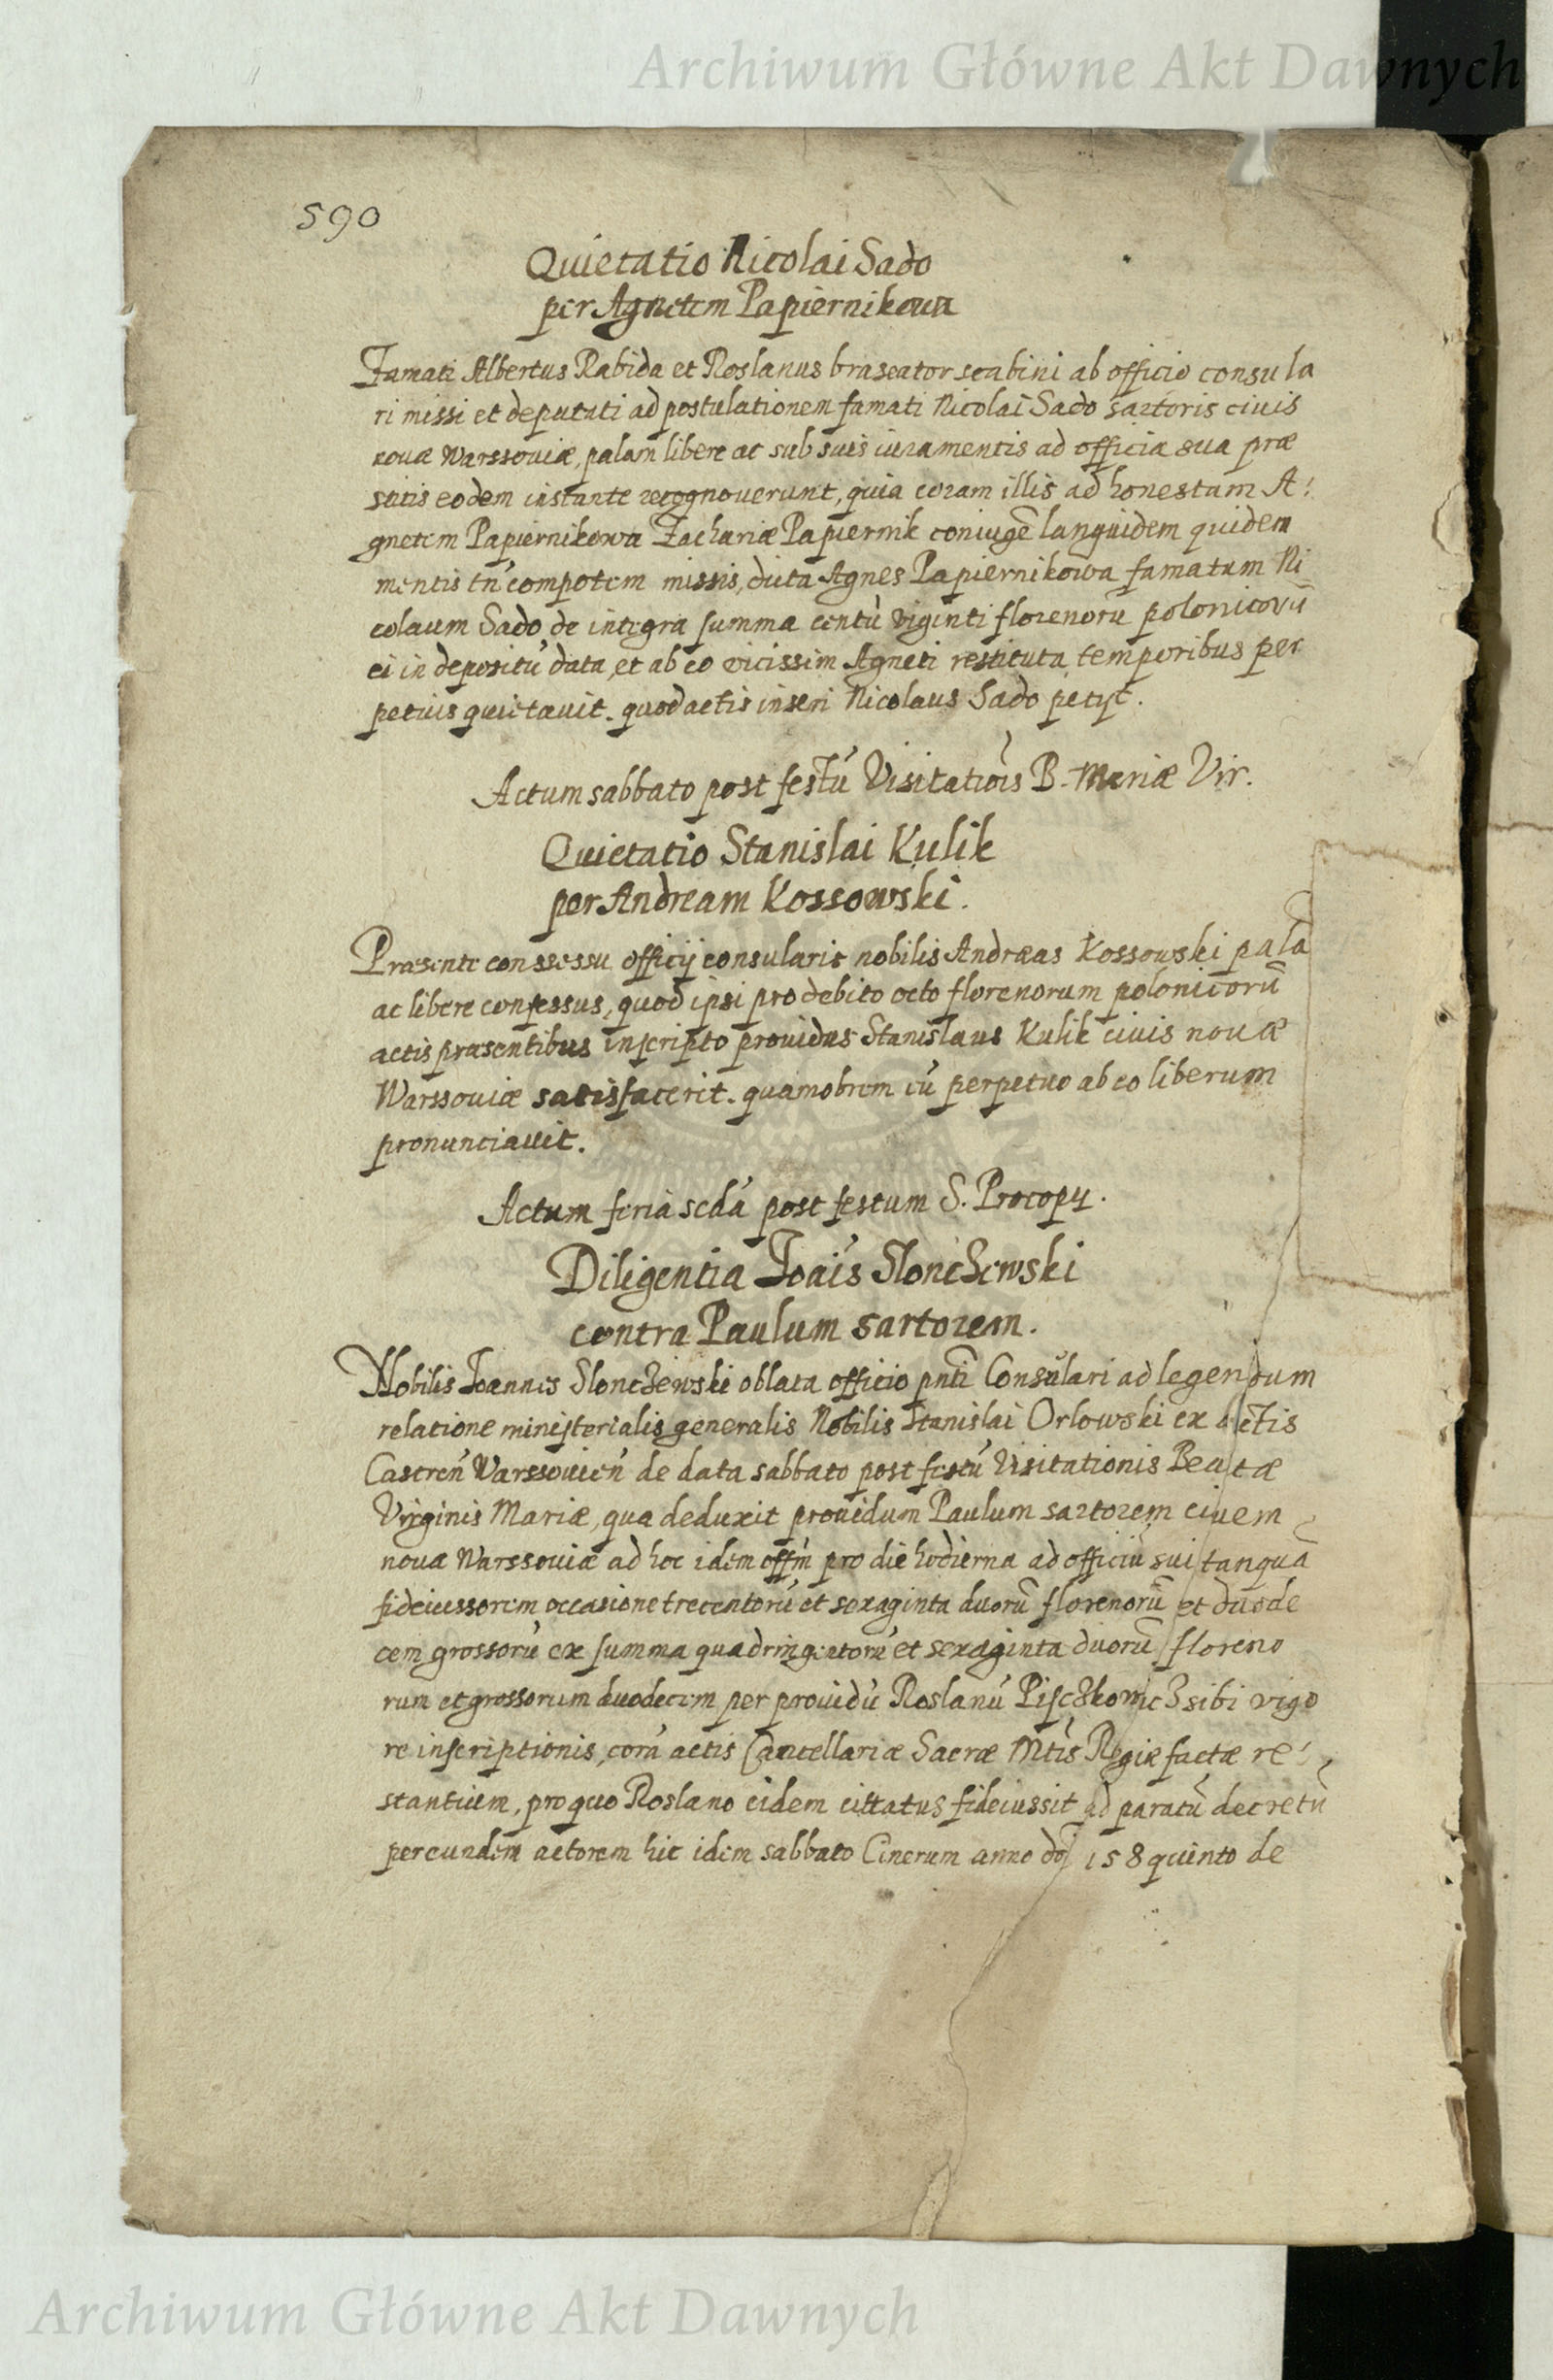 Archiwum Główne Akt Dawnych
590
Quietatio Nicolai Sado
per Agnetem Papiernikowa
Famati Albertus Rabida et Roslanus braseator scabini ab officio consula
ri missi et deputati ad postulationem famati Nicolai Sado sartoris ciuis
nouæ Warssouiæ, palam libere ac sub suis iuramentis ad officia sua præ
stitis eodem instante recognouerunt, quia coram illis ad honestam A:
gnetem Papiernikowa Zachariæ Papiernik coniugē languidem quidem
mentis tn̄ compotem missis, dicta Agnes Papiernikowa famatum Ni
colaum Sado de integra summa centū viginti florenorū polonicorū
ei in depositū data, et ab eo vicissim Agneti restituta temporibus per
petuis quietauit. quod actis inseri Nicolaus Sado petijt.
Actum sabbato post festū Visitatiōis B. Mariæ Vir.
Quietatio Stanislai Kulik
per Andream Kossowski.
Præsente conssessu officij consularis nobilis Andræas Kossowski palā
ac libere confessus, quod ipsi pro debito octo florenorum polonicorū
actis præsentibus inscripto prouidus Stanislaus Kulik ciuis nouæ
Warssouiæ satisfacerit. quamobrem eū perpetuo ab eo liberum
pronunciauit.
Actum feria scdā post festum S. Procopij.
Diligentia Joāis Slonczewski
contra Paulum sartorem.
Nobilis Joannes Slonczewski oblata officio pn̄ti Consulari ad legendum
relatione ministerialis generalis Nobilis Stanislai Orlowski ex actis
Castren̄ Warssouien̄ de data sabbato post festū Visitationis Beatæ
Virginis Mariæ, qua deduxit prouidum Paulum sartorem ciuem
nouæ Warssouiæ ad hoc idem offm̄ pro die hodierna ad officiū sui tanquā
fideiussorem occasione trecentorū et sexaginta duorū florenorū et duode
cem grossorū ex summa quadringentorū et sexaginta duorū floreno
rum et grossorum duodecem per prouidū Roslanū Pisczkowicz sibi vigo
re inscriptionis, corā actis Cancellariæ Sacræ Mtis Regiæ factæ re:
stantium, pro quo Roslano eidem cittatus fideiussit ad paratū decretū
per eundem actorem hic idem sabbato Cinerum anno dōi 158quinto de
Archiwum Główne Akt Dawnych